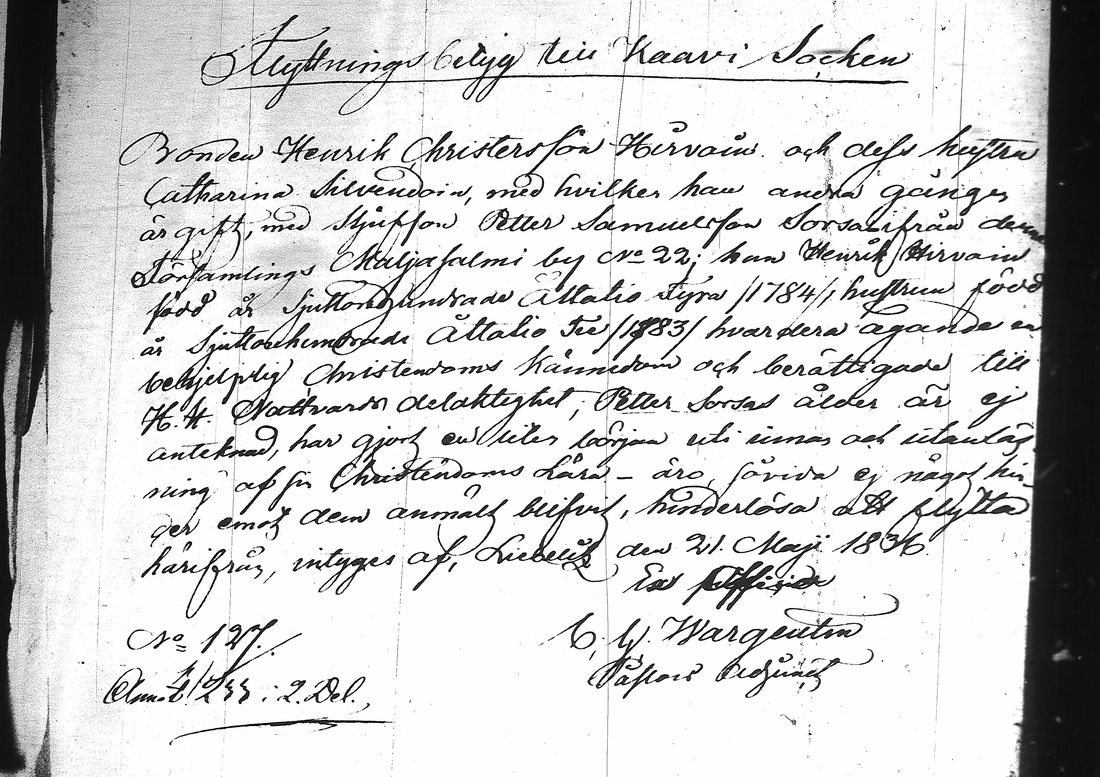 Flyttningsbetyg till Kaavi Socken
Bonden Henrik Christersson Hirvoin och dess hustru
Catharina Silvendoin, med hvilken han andra gången
är gift, med Stjufson Petter Samuelsson Sorsa ifrån denna
Församlings Maljasalmi by No 22; han Henrik Hirvoin
född år Sjuttonhundrade Åttatio Fyra /1784/, hustrun född
år Sjuttonhundrade Åttatio Tre /1783/ hvardera ägande en
behjelplig Christendoms Kännedom och berättigade till
H. H. Nattvards delaktighet; Petter Sorsas ålder är ej
anteknad, har gjort en liten början uti innan och utanläs
ning af sin Christendoms Lära – äro, såvida ej något hin-
der emot dem anmält blifvit, hinderlösa att flytta
härifrån, intyges af, Libelitz den 21. Maji 1836.
Ex officio
C. G. Wargentin
Pastors Adjunct
No 127.
Annot. 233 i 2. Del.